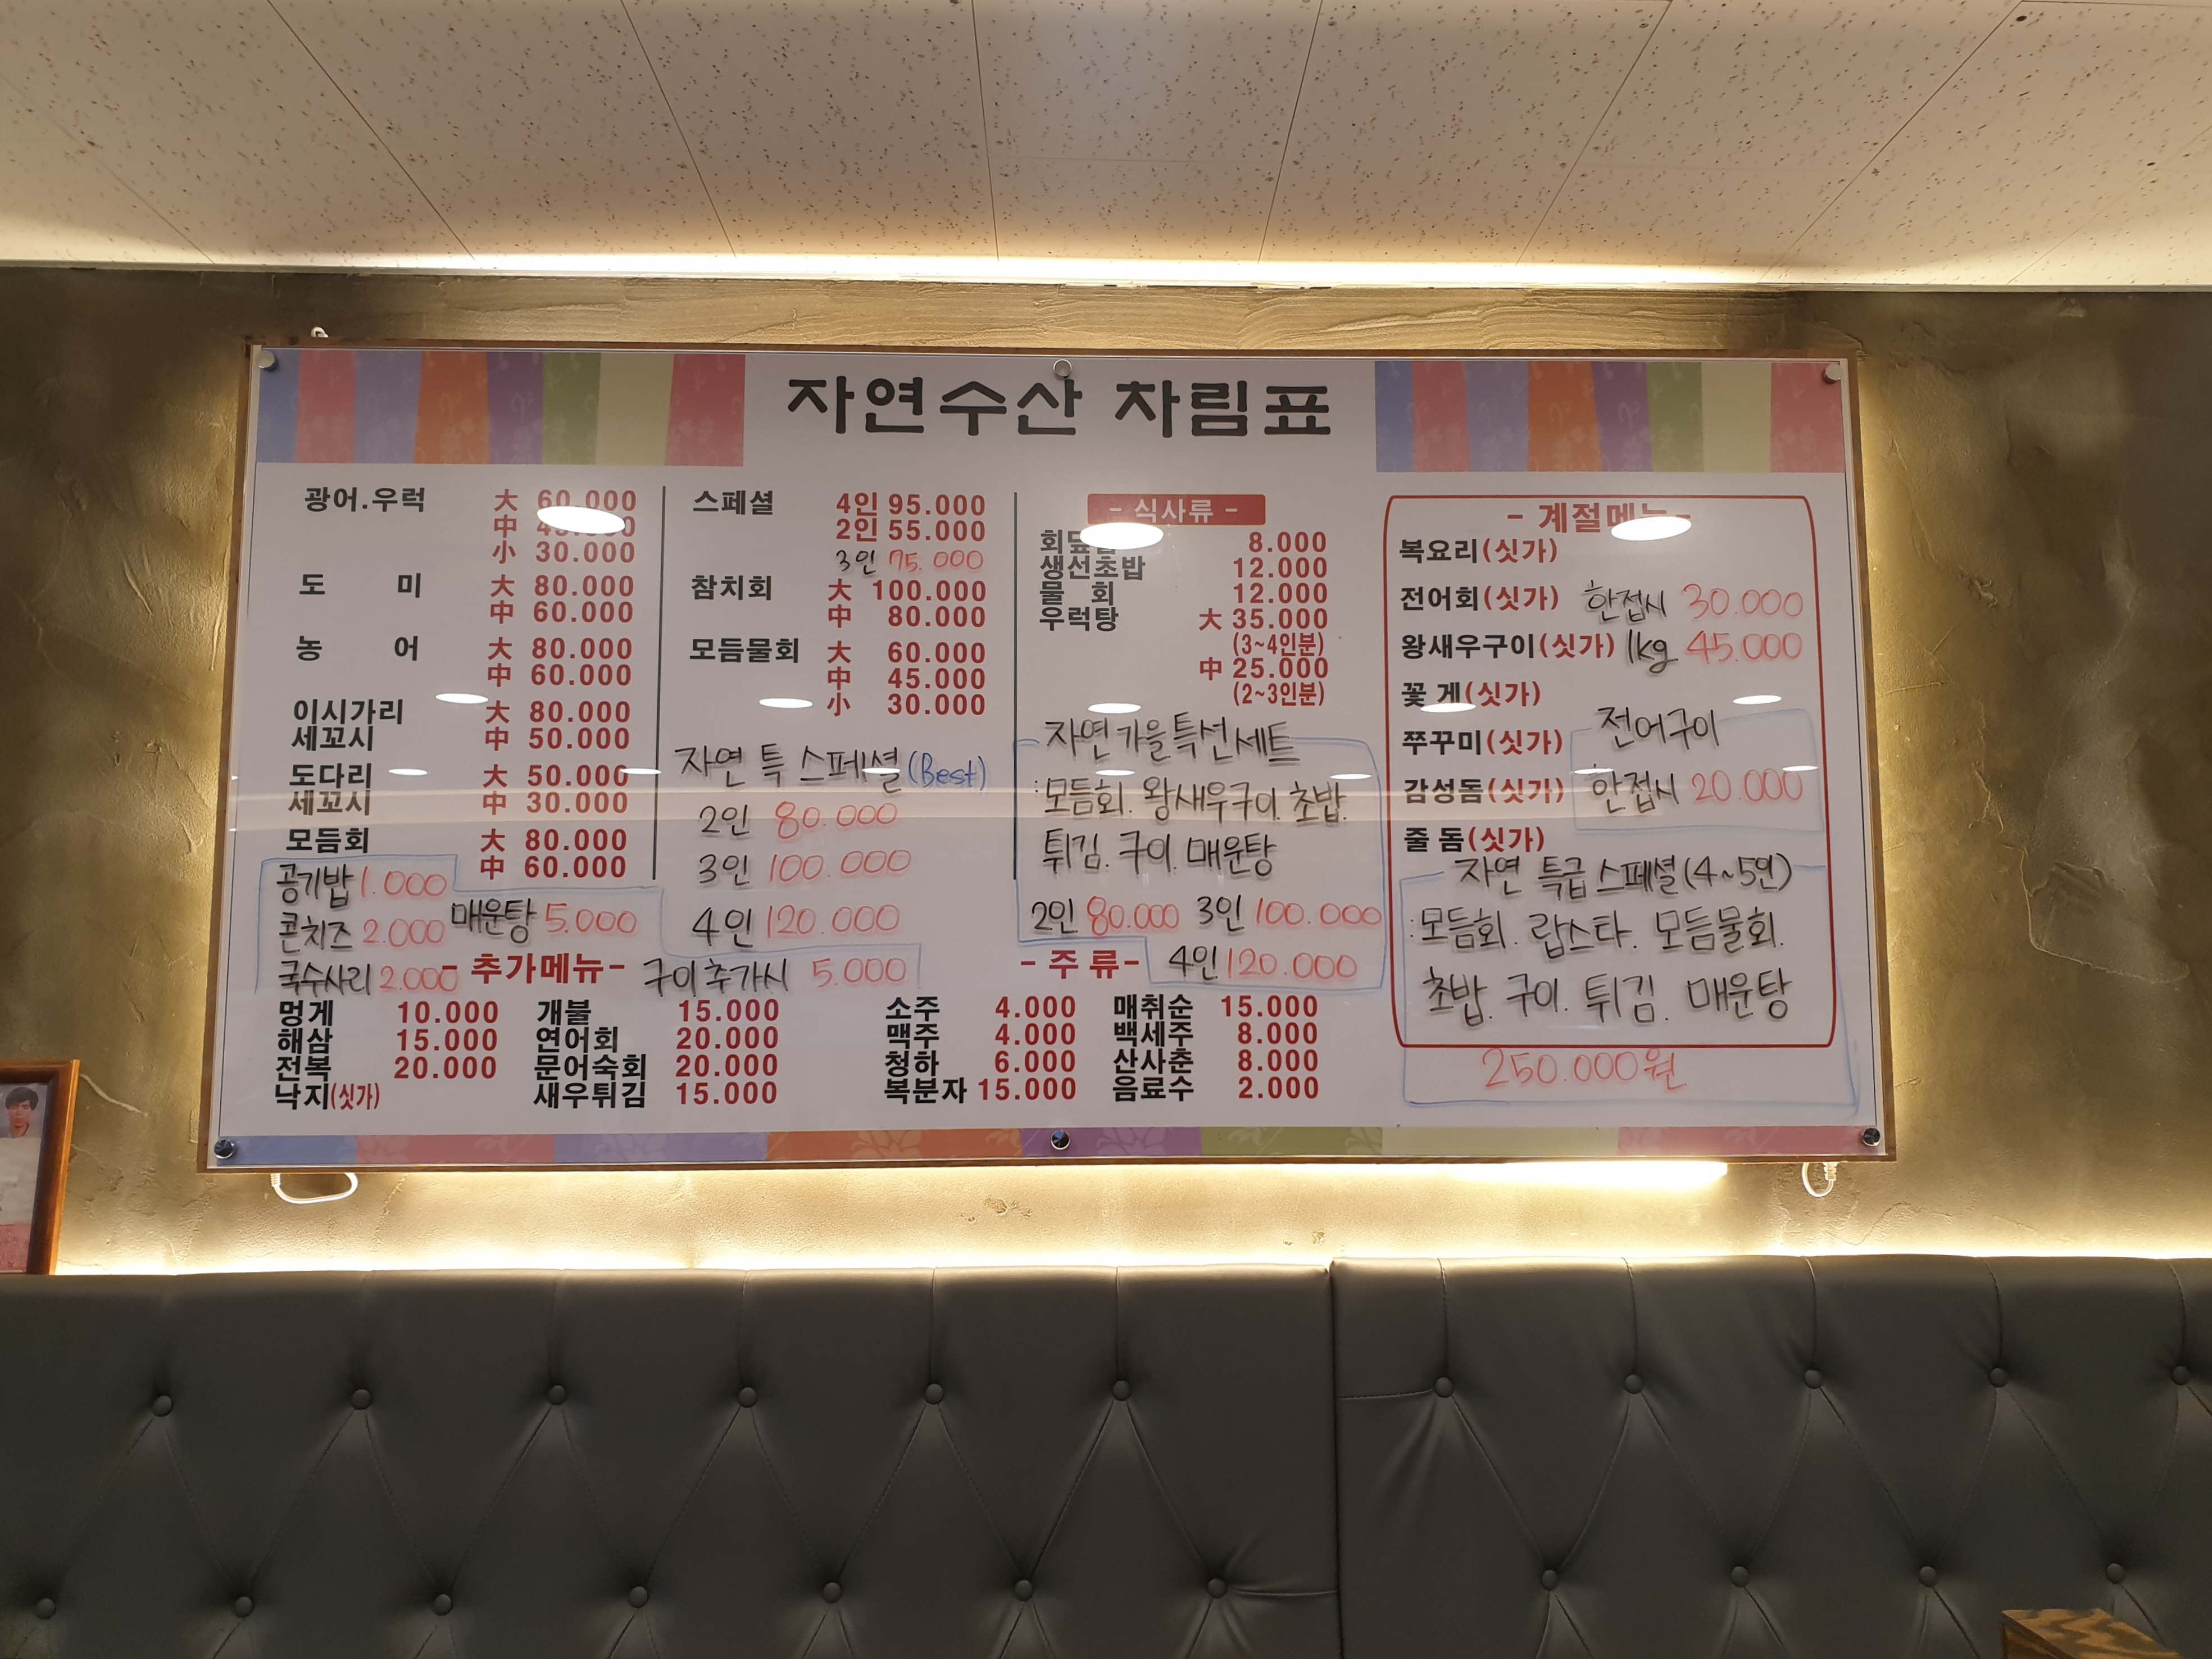 자연수산 차림표
광어.우럭 大 60.000
中
小 30.000
도 미 大 80.000
中 60.000
농 어 大 80.000
中 60.000
이시가리 大 80.000
세꼬시 中 50.000
도다리 大 50.000
세꼬시 中 30.000
모듬회 大 80.000
中 60.000
공기밥 1.000
콘치즈 2.000 매운탕 5.000
국수사리 2.000
스페셜 4인 95.000
2인 55.000
3인 75.000
참치회 大 100.000
中 80.000
모듬물회 大 60.000
中 45.000
小 30.000
자연 특 스페셜 (Best)
2인 80.000
3인 100.000
4인 120.000
구이추가시 5.000
- 식사류 -
8.000
생선초밥 12.000
물 회 12.000
우럭탕 大 35.000
(3~4인분)
中 25.000
(2~3인분)
자연가을특선세트
:모듬회. 왕새우구이. 초밥.
튀김. 구이. 매운탕
2인 80.000 3인 100.000
4인 120.000
- 계절메뉴 -
복요리(싯가)
전어회(싯가) 한접시 30.000
왕새우구이(싯가) 1kg 45.000
꽃 게(싯가)
쭈꾸미(싯가) 전어구이
감성돔(싯가) 한접시 20.000
줄 돔(싯가)
자연 특급 스페셜(4~5인)
:모듬회. 랍스타. 모듬물회.
초밥. 구이. 튀김. 매운탕
250.000원
- 추가메뉴 -
멍게 10.000 개불 15.000
해삼 15.000 연어회 20.000
전복 20.000 문어숙회 20.000
낙지(싯가) 새우튀김 15.000
- 주 류 -
소주 4.000 매취순 15.000
맥주 4.000 백세주 8.000
청하 6.000 산사춘 8.000
복분자 15.000 음료수 2.000